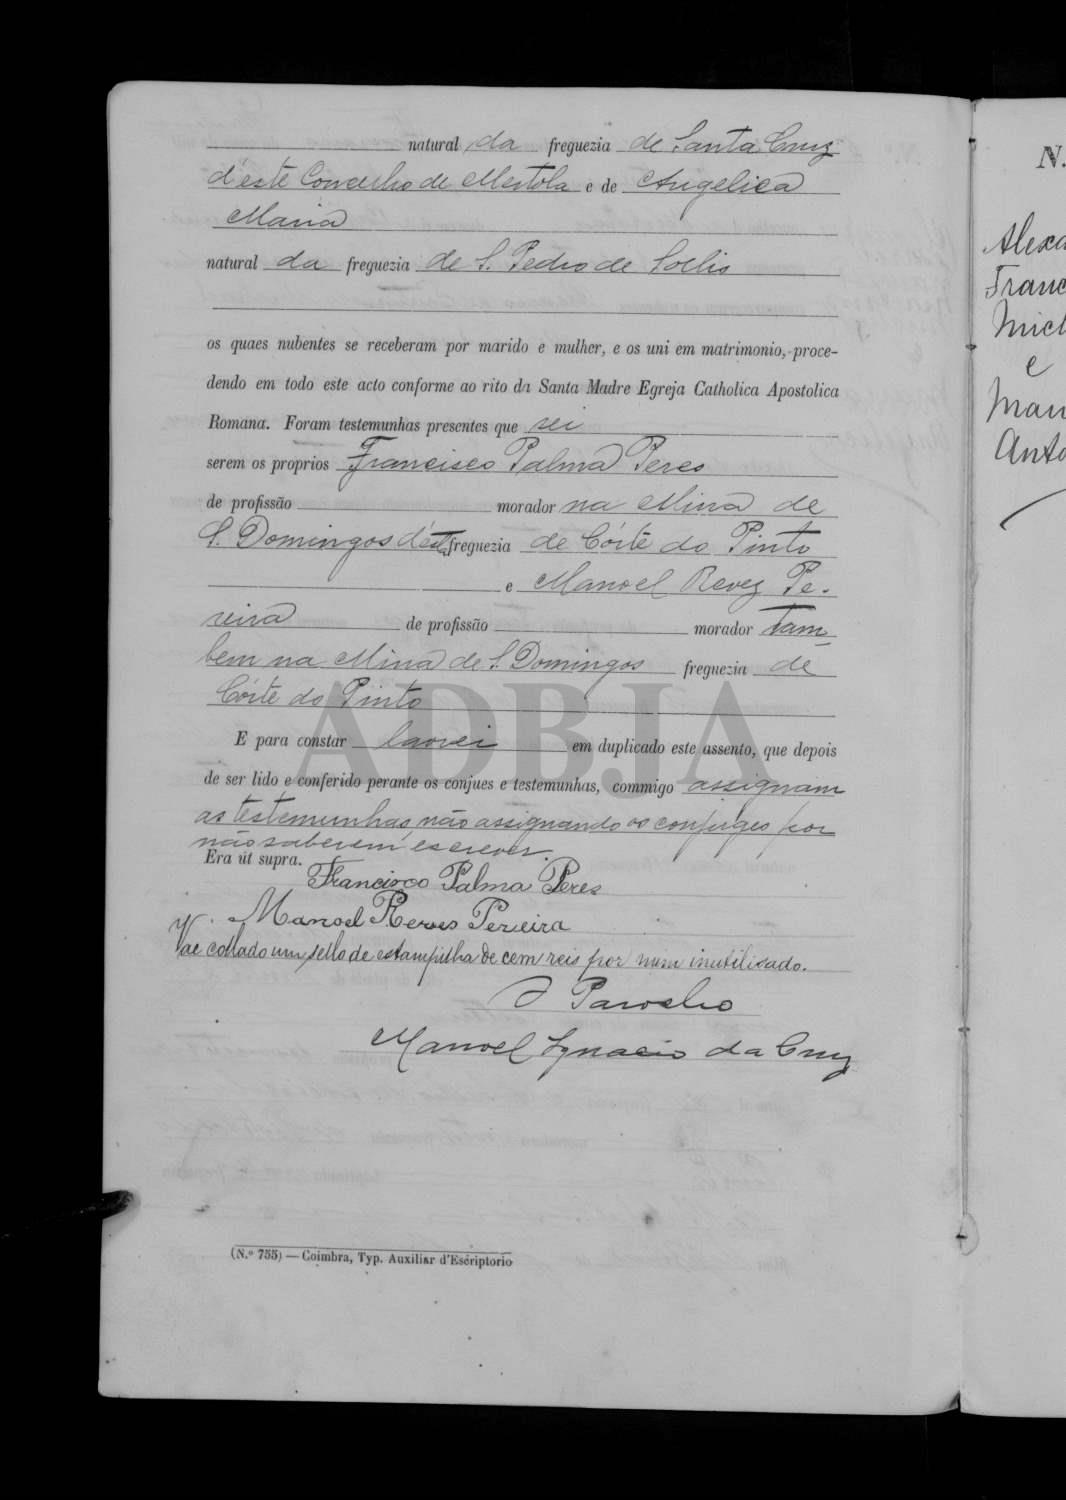 natural da freguezia de Santa Cruz
d'este Concelho de Mertola e de Angelica
Maria
natural da freguezia de S. Pedro de Sollis
os quaes nubentes se receberam por marido e mulher, e os uni em matrimonio, proce-
dendo em todo este acto conforme ao rito da Santa Madre Egreja Catholica Apostolica
Romana. Foram testemunhas presentes que sei
serem os proprios Francisco Palma Peres
de profissão morador na Mina de
S. Domingos d'esta freguezia de Córte do Pinto
e Manoel Revez Pe-
reira de profissão morador tam-
bem na Mina de S. Domingos freguezia de
Córte do Pinto
E para constar lavrei em duplicado este assento, que depois
de ser lido e conferido perante os conjues e testemunhas, commigo assignam
as testemunhas, não assignando os conjuges por
não saberem escrever.
Era út supra.
Francisco Palma Peres
Manoel Reves Pereira
Vae collado um sello de estampilha de cem reis por mim inutilisado.
O Parocho
Manoel Ignacio da Cruz
(N.º 755) — Coimbra, Typ. Auxiliar d'Escriptorio
ADBJA
N.
Alexa
Franc
Mich
e
Man
Anto